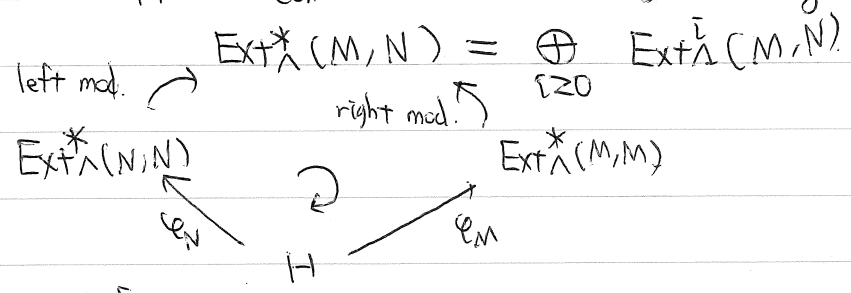 Ext*Λ(M,N) = ⊕ i≥0 ExtiΛ(M,N).
left mod.
right mod.
Ext*Λ(N,N) Ext*Λ(M,M)
φN φM
H